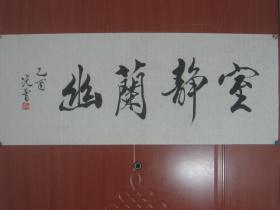 室静蘭幽
乙酉